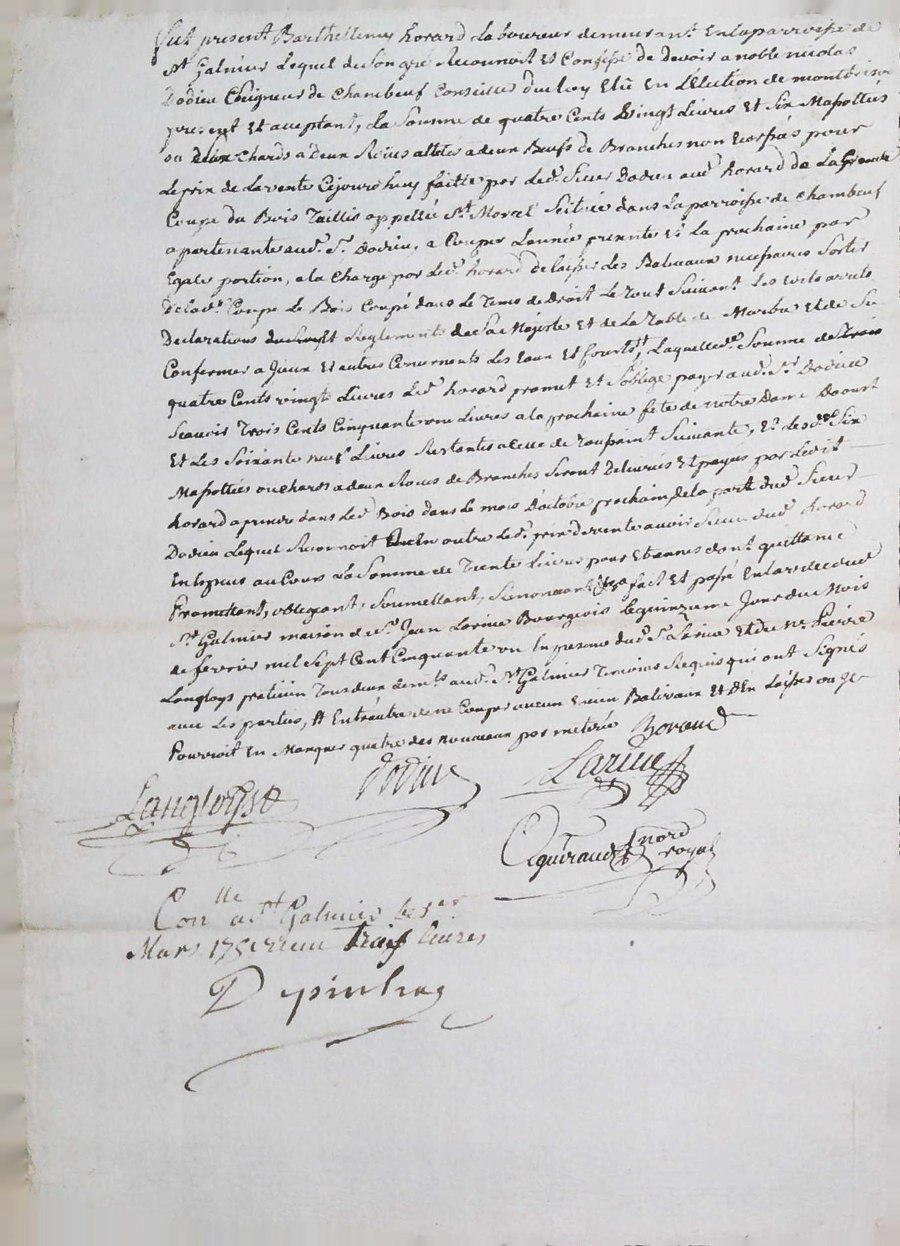 Fut present Barthellemy horard Laboureur demeurant En la parroisse de
St Galmier Lequel de son gré Reconnoit Et Confesse de devoir a noble nicolas
Dodieu Seigneur de Chambeuf Conseiller du Roy Elu En L'Election de montbrison
present Et acceptant, La Somme de quatre Cents Vingt Livres Et Six
ou deux Chards a deux Roües attelés a deux Beufs de Branches non pour
Le prix de La vente Cejourdhuy faitte par Led. Sieur Dodieu aud. horard de La
Coupe du Bois Taillis appellée St Morel Scituée dans La parroisse de Chambeuf
apartenante aud. Sr. Dodieu, a Couper L'année presente Et La prochaine par
Egale portion, a la Charge par Led. horard de laisser Les Baliveaux necessaires Sortir
de lad. Coupe Le Bois Coupé dans Le Tems de droit Le Tout Suivant Les arrets
Declarations Et Reglements de Sa Majesté Et de La Table de Marbre Et de Se
Conformer a Iceux Et autres Concernants Les Eaux Et forests, Laquelle d. Somme de
quatre Cents vingt Livres Led. horard promet Et S'oblige payer aud. Sr. Dodieu
Scavoir Trois Cents Cinquante une Livres a la prochaine fete de notre Dame D'aoust
Et Les Soixante neuf Livres Restantes a Celle de Toussaint Suivante, Et Lesd. Six
ou chards a deux Roues de Branches Seront Delivrées Et payées par Ledit
horard a prendre dans Led. Bois dans Le mois D'octobre prochain, de la part dud. Sieur
Dodieu Lequel Reconnoit En outre Led. prix de vente avoir Receu dud. horard
En Especes au Cours La Somme de Trente Livres pour Etrennes dont quittance
Promettant, obligeant, Soumettant, Renoncant &a fait Et passé En la Ville dud.
St. Galmier maison de Sr. Jean Larue Bourgeois Le quinzieme Jour du Mois
de fevrier mil Sept Cent Cinquante un En presence dud. Sr. Larue Et de Me. Pierre
Langloys praticien Tous deux demts aud. St. Galmier Temoins Requis qui ont Signés
avec Les parties, Et Entre autre de ne Couper aucun Ancien Balivaux Et D'En Laisser ou Il
Pourroit En Manquer quatre des nouveaux par meterée Horard
Langloys Dodieu Larue
nore royal
Conlle a St Galmier le 1er
Mars 1751 Trois livres